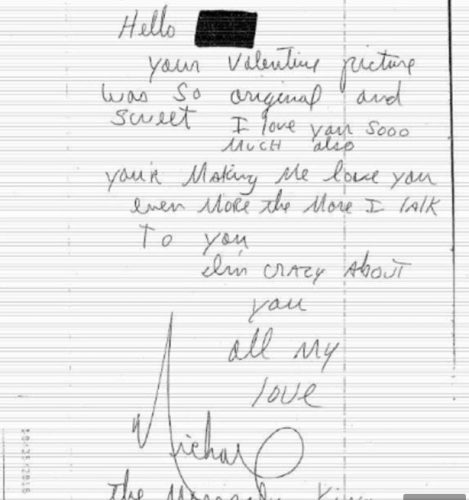 Hello
your Valentine picture
was so original and
sweet I love you sooo
MUCH also
you're Making Me love you
even More the More I talk
To you
I'm CRAZY About
you
all My
love
Michael
the